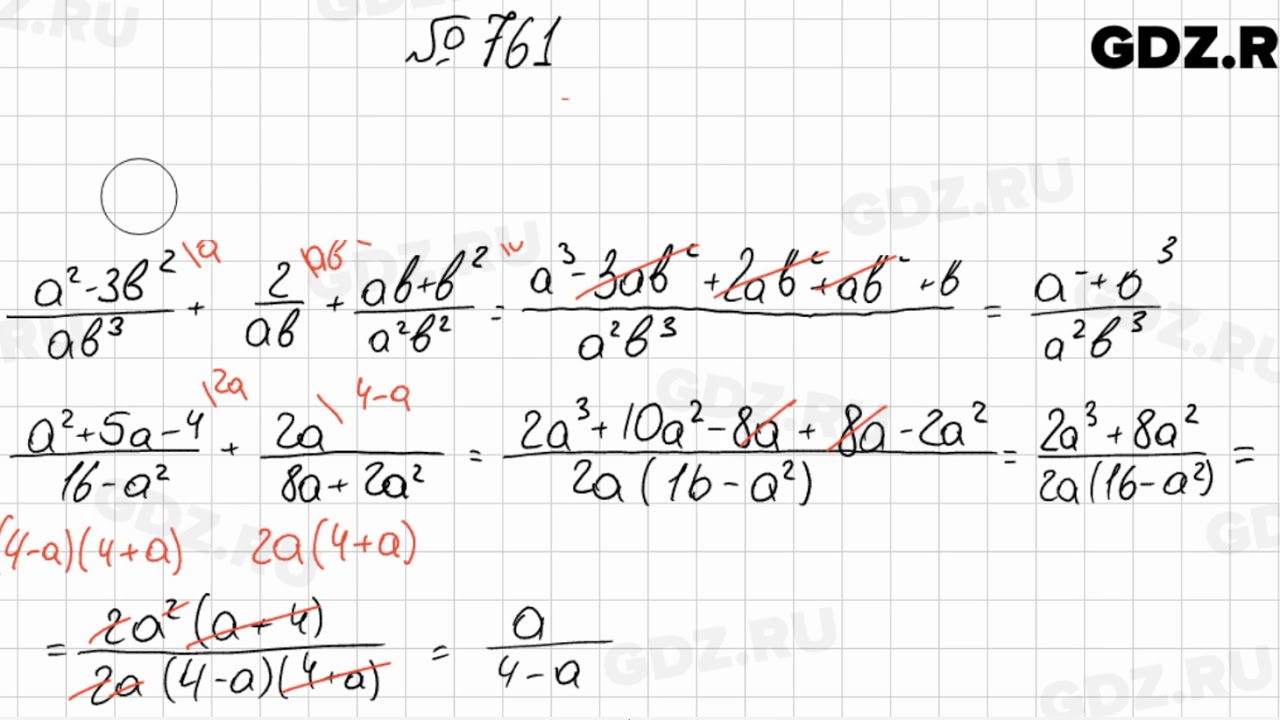 № 761
GDZ.R
(a² - 3b²)/(ab³) \a + 2/(ab) \ab + (ab + b²)/(a²b²) = (a³ - 3ab² + 2ab² + ab² + b)/(a²b³) = (a + b³)/(a²b³)
(a² + 5a - 4)/(16 - a²) \2a + 2a/(8a + 2a²) \4-a = (2a³ + 10a² - 8a + 8a - 2a²)/(2a(16 - a²)) = (2a³ + 8a²)/(2a(16 - a²)) =
(4-a)(4+a) 2a(4+a)
= (2a²(a + 4))/(2a(4-a)(4+a)) = a/(4 - a)